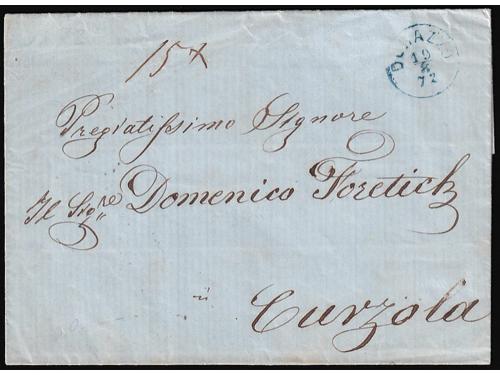 15x
DURAZZO
19
X
72
Pregiatissimo Signore
Il Sigre Domenico Foretich
Curzola